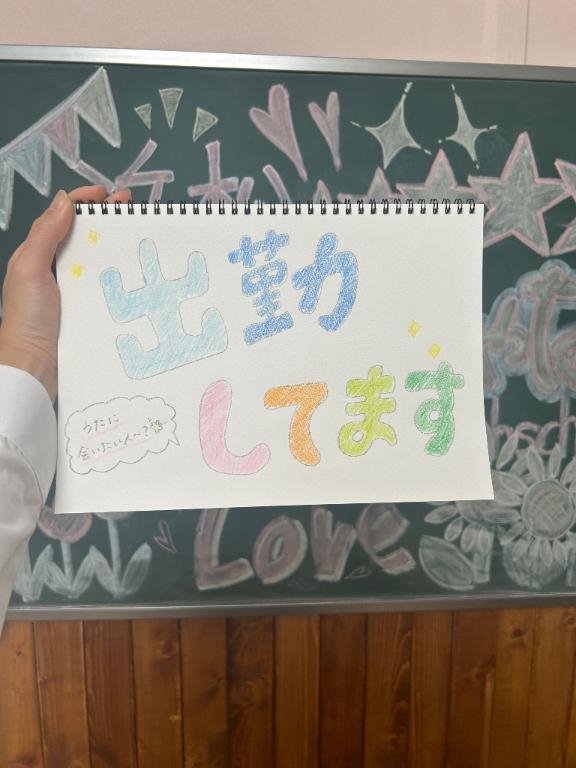 出勤
してます
うたに
会いたい人〜?
Love